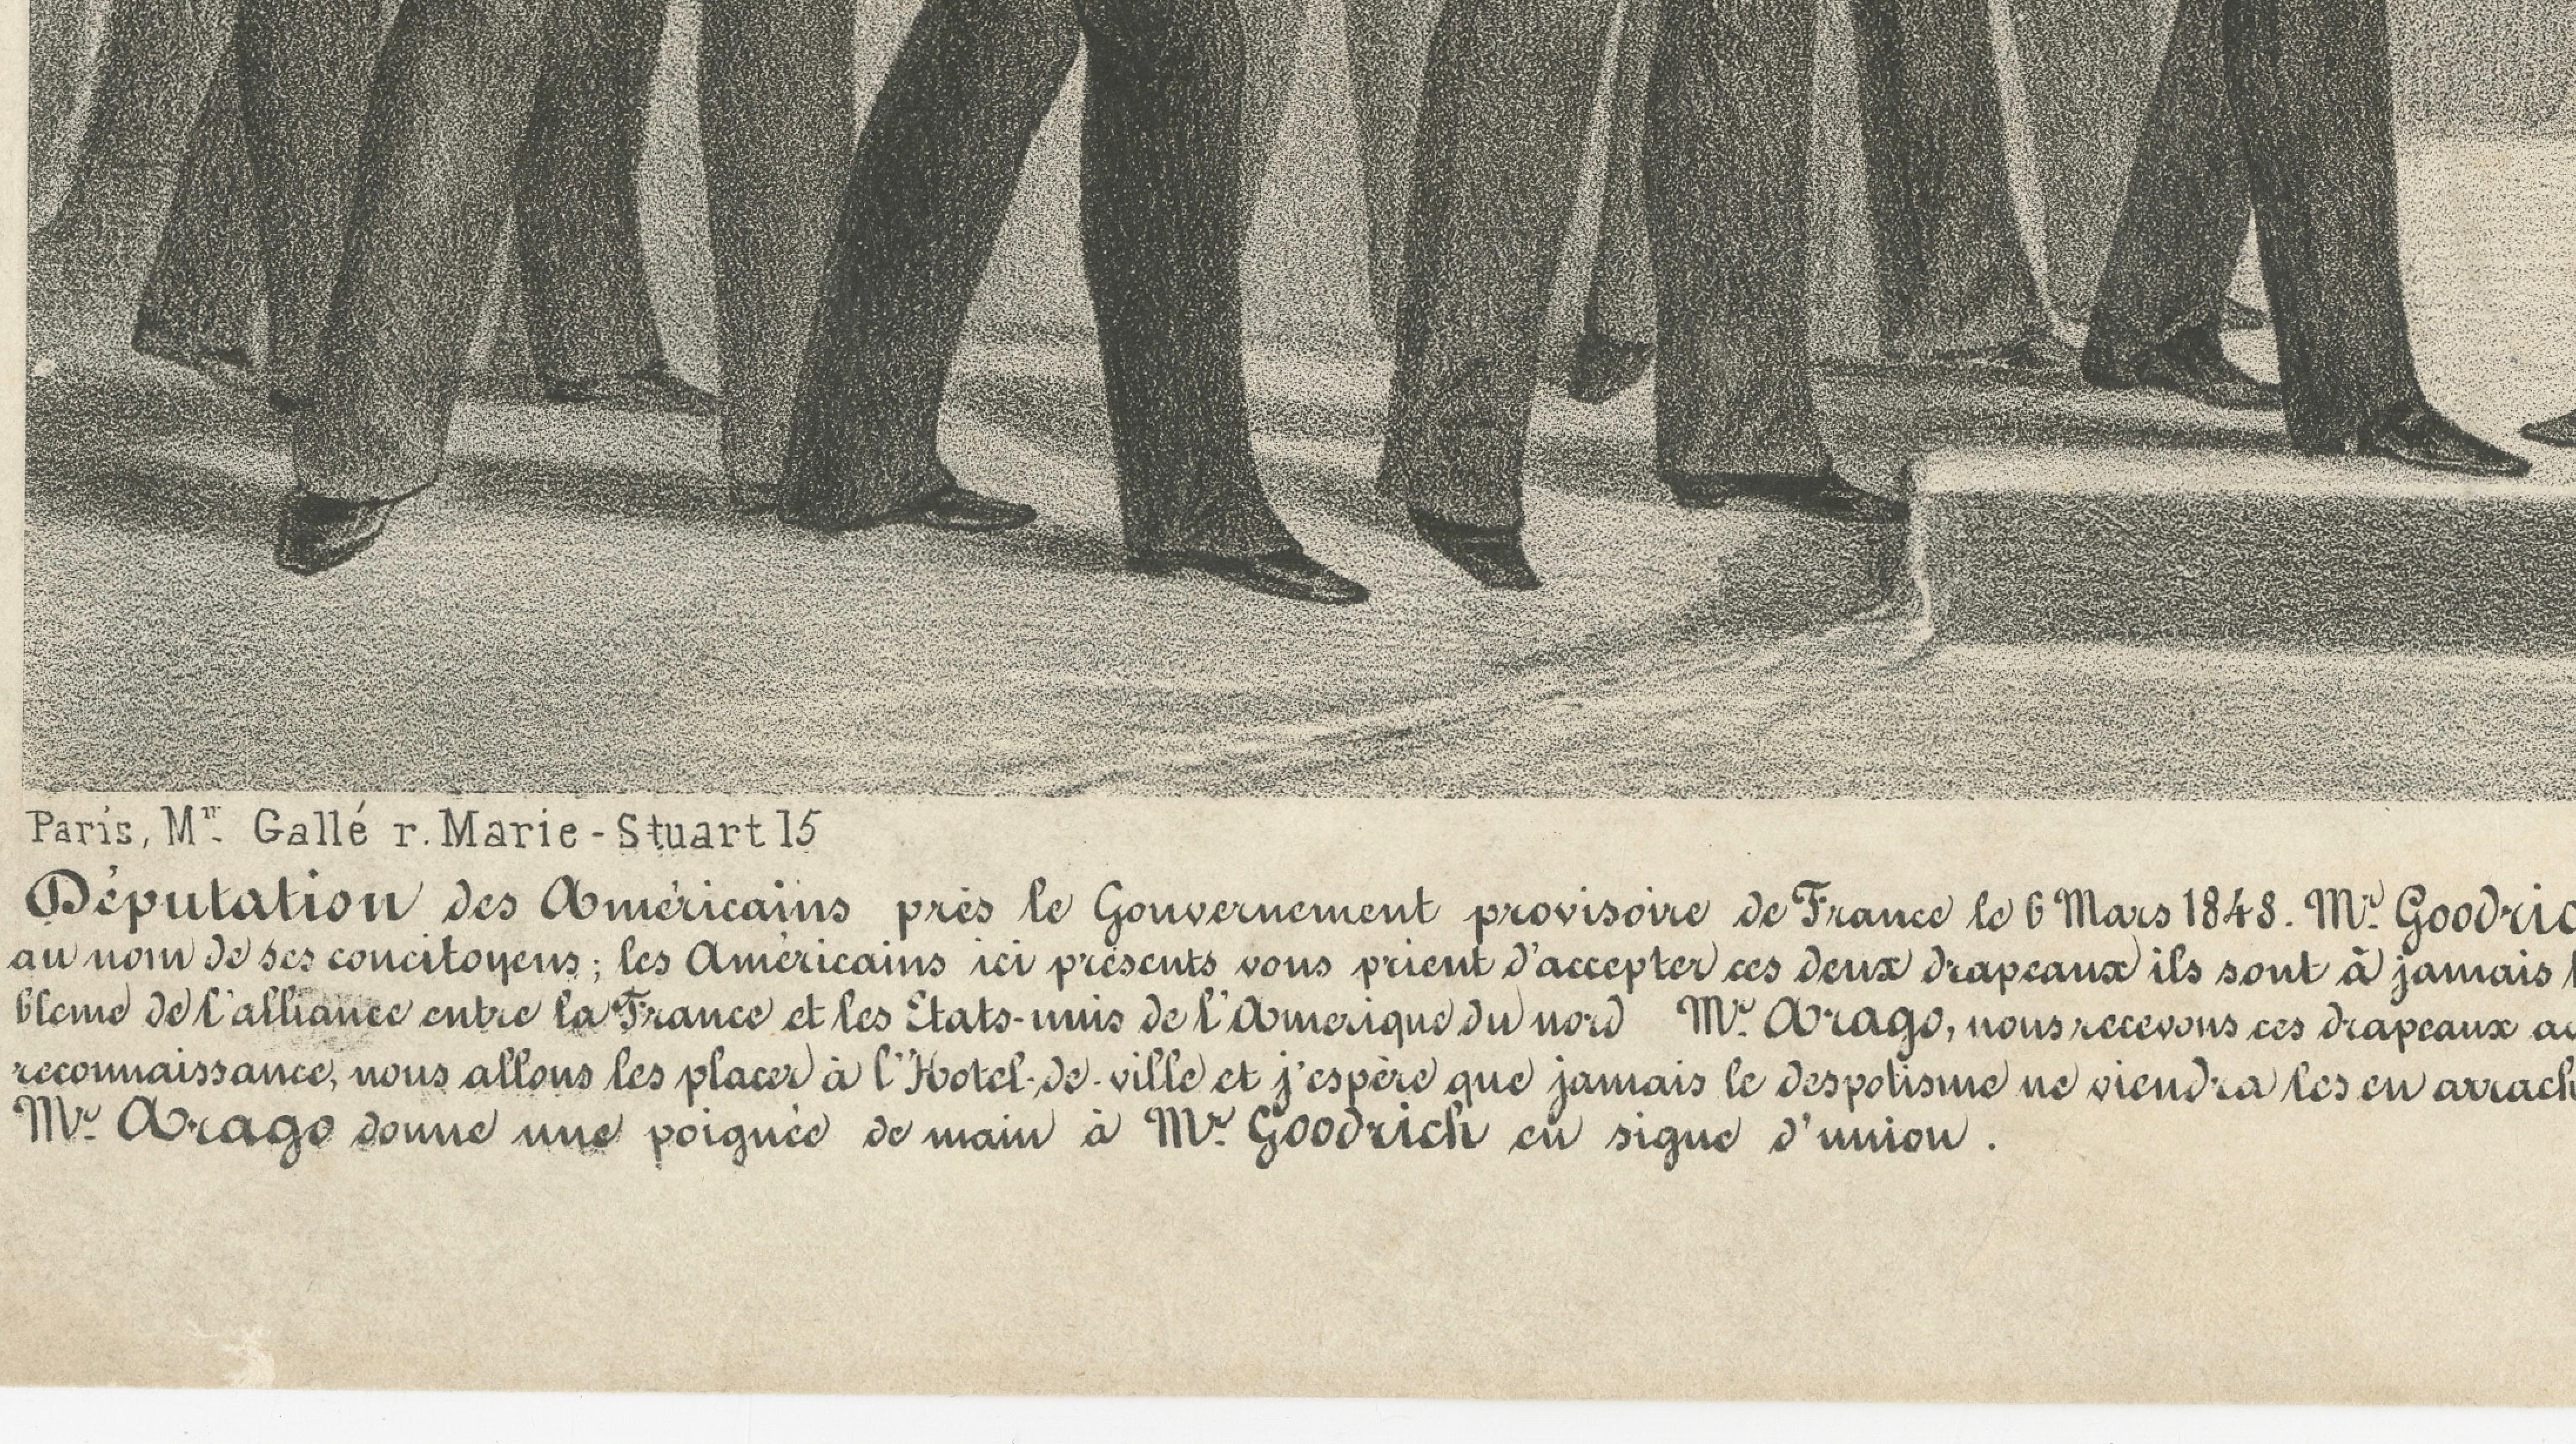 Paris, Mⁿ. Gallé r. Marie-Stuart 15
Députation des Américains près le Gouvernement provisoire de France le 6 Mars 1848. Mʳ. Goodric
au nom de ses concitoyens; les Américains ici présents vous prient d'accepter ces deux drapeaux ils sont à jamais l
blème de l'alliance entre la France et les Etats-unis de l'Amerique du nord Mʳ. Arago, nous recevons ces drapeaux a
reconnaissance, nous allons les placer à l'Hotel-de-ville et j'espère que jamais le despotisme ne viendra les en arrach
Mʳ. Arago donne une poignée de main à Mʳ. Goodrich en signe d'union.